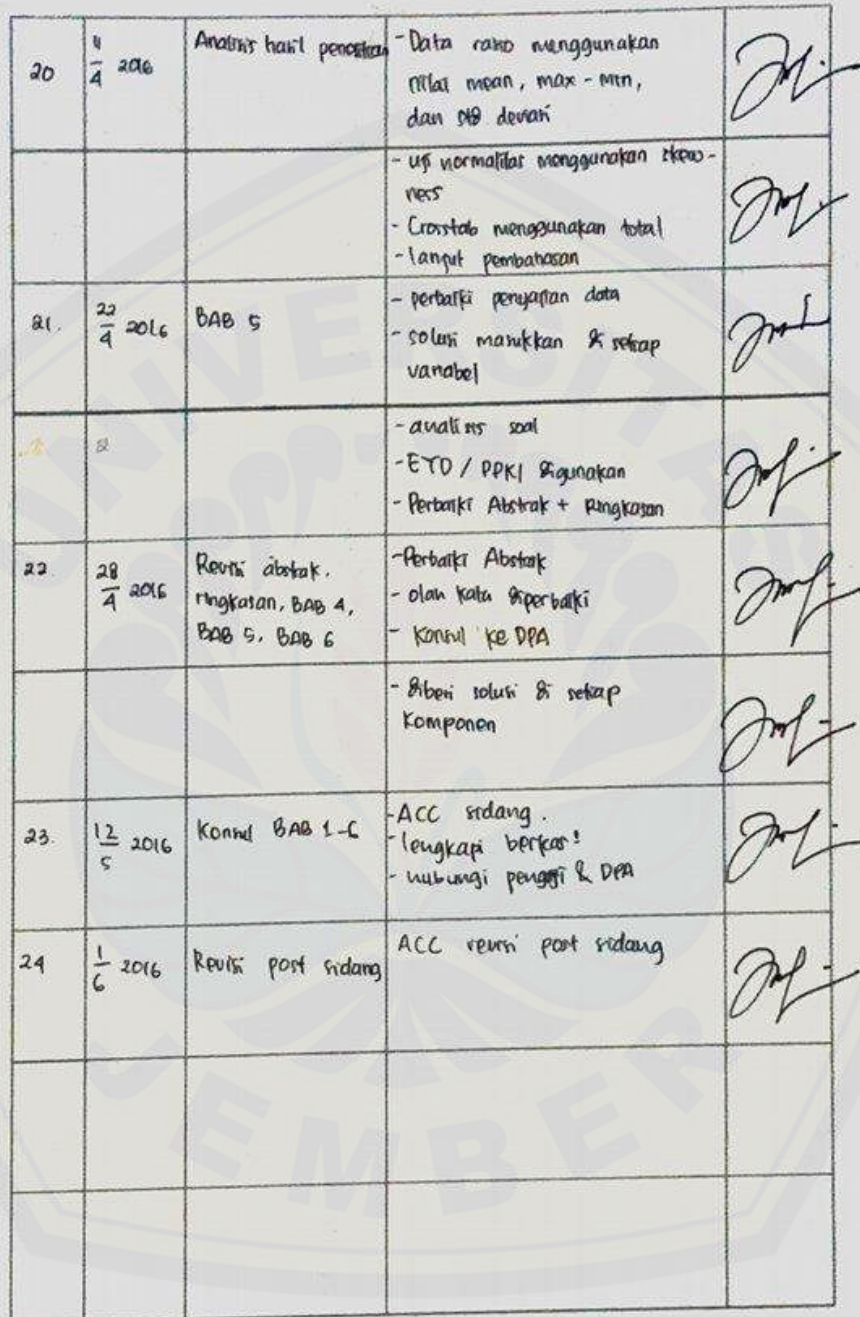 20
4/4 2016
Analisis hasil penelitian
- Data rasio menggunakan
nilai mean, max - min,
dan std deviasi
- uji normalitas menggunakan skew-
ness
- Crosstab menggunakan total
- lanjut pembahasan
21.
22/4 2016
BAB 5
- perbaiki penyajian data
- solusi masukkan di setiap
variabel
- analisis soal
- ETD / PPKI digunakan
- Perbaiki Abstrak + Ringkasan
22.
28/4 2016
Revisi abstrak,
ringkasan, BAB 4,
BAB 5, BAB 6
- Perbaiki Abstrak
- olah kata diperbaiki
- Konsul ke DPA
- diberi solusi di setiap
komponen
23.
12/5 2016
Konsul BAB 1-6
- ACC sidang.
- lengkapi berkas!
- hubungi penguji & DPA
24
1/6 2016
Revisi post sidang
ACC revisi post sidang
UNIVERSITAS
JEMBER